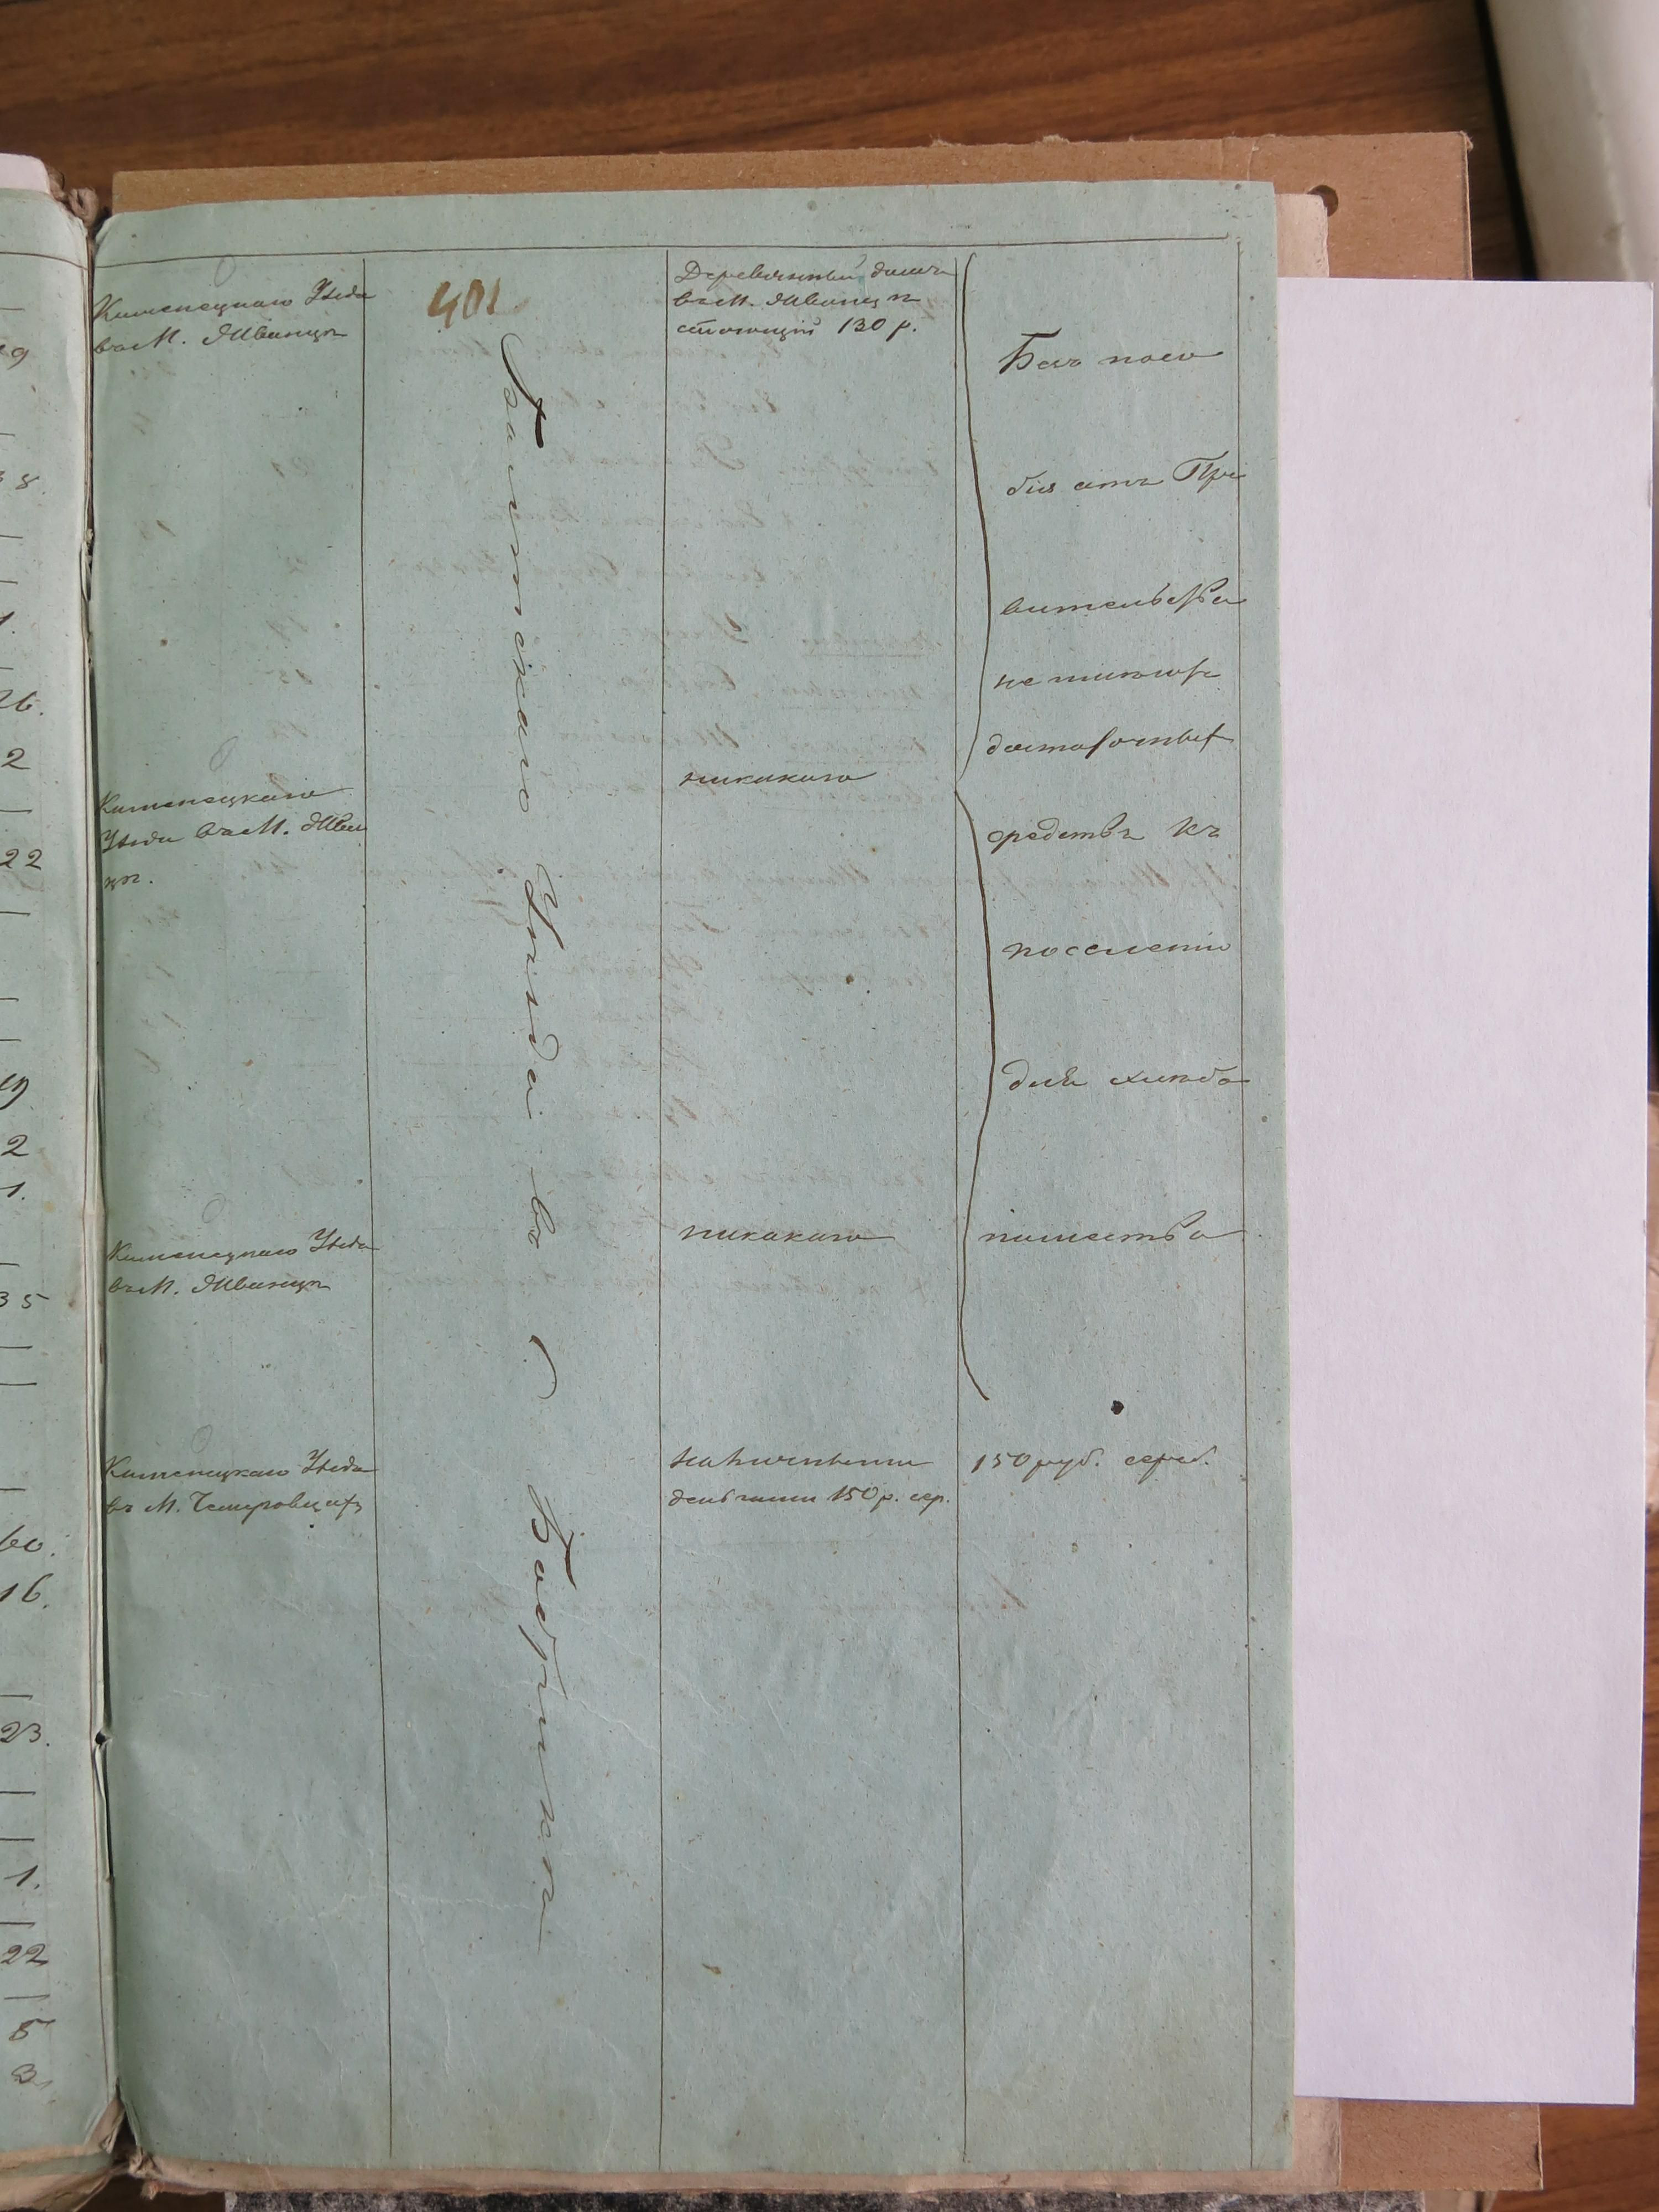 401
Каменецкаго Уѣзда
въ М. Жванцѣ
Каменецкаго
Уѣзда въ М. Жван
цѣ.
Каменецкаго Уѣзда
въ М. Жванцѣ
Каменецкаго Уѣзда
въ М. Чемеровцахъ
Балтскаго Уѣзда въ С. Бобрикѣ
Деревянный домъ
въ М. Жванцѣ
стоющій 130 р.
никакаго
никакаго
наличными
деньгами 150 р. сер.
Безъ посо
бія отъ Пра
вительства
не имѣютъ
достаточныхъ
средствъ къ
поселенію
для хлѣбо
пашества
150 руб. сереб.
9
38.
1.
26.
2
22
19
2
1.
35
60.
16.
23.
1.
22
5
3